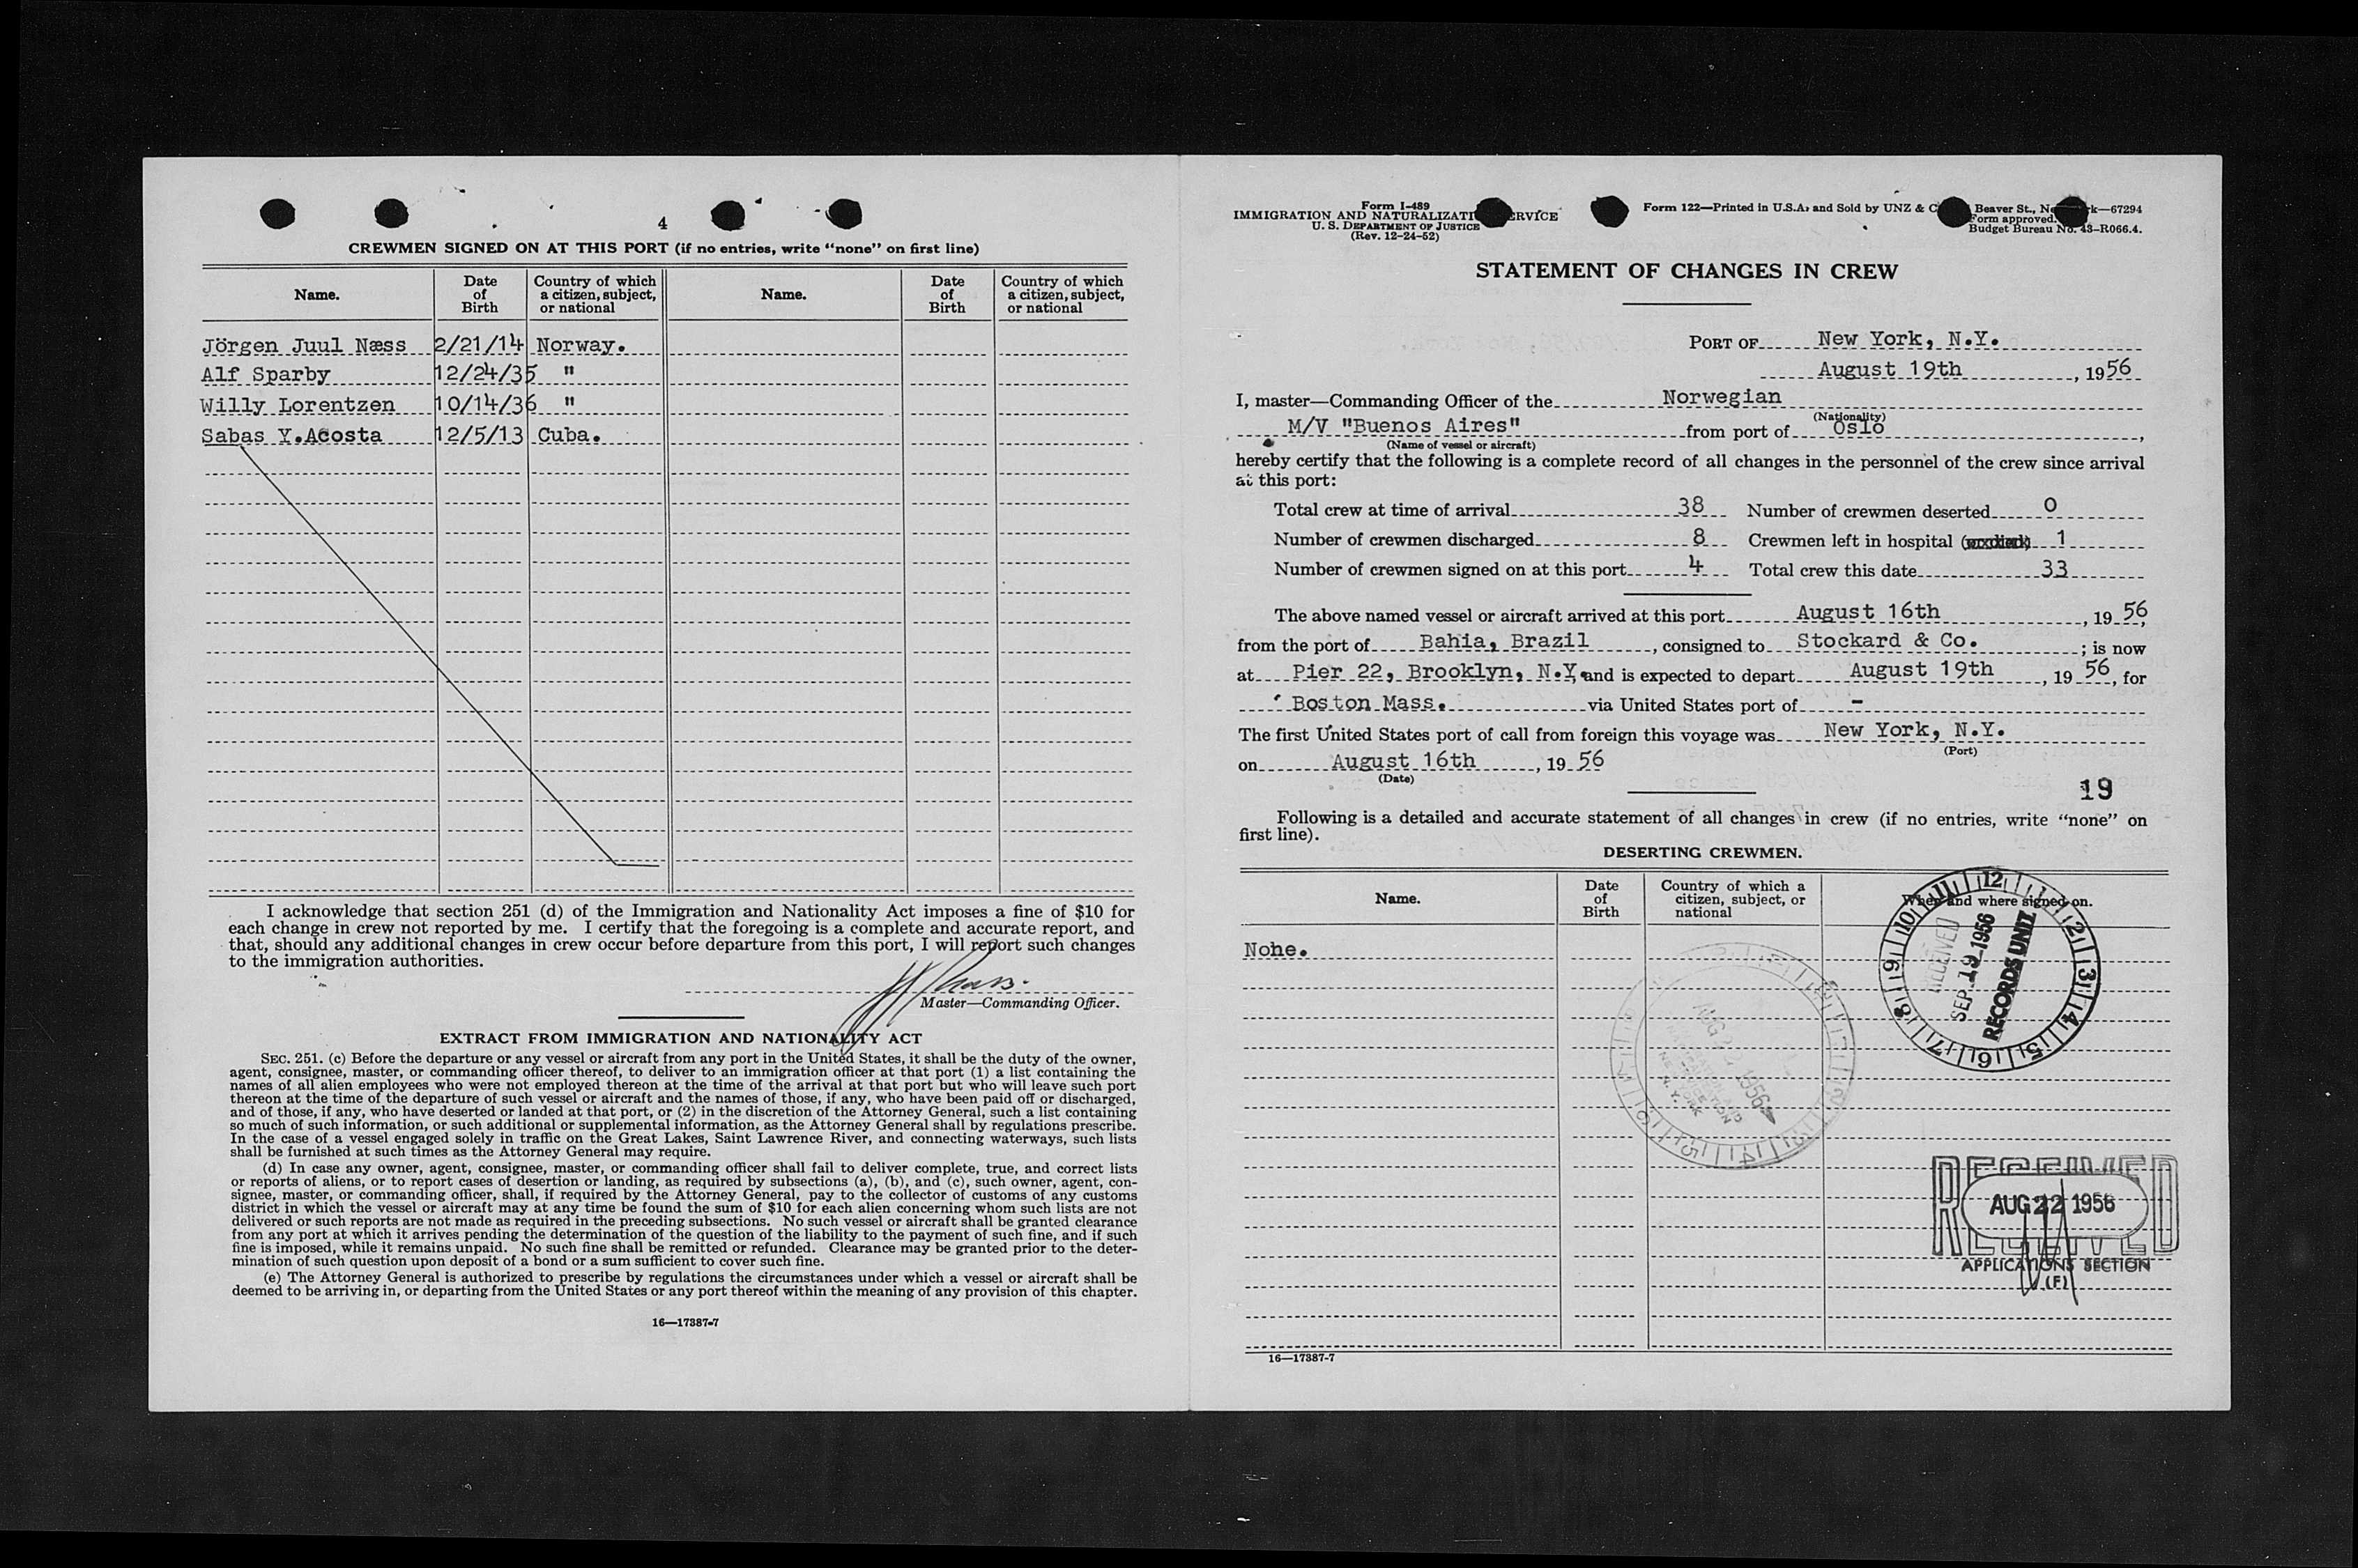 4
CREWMEN SIGNED ON AT THIS PORT (if no entries, write “none” on first line)
Name. Date of Birth Country of which a citizen, subject, or national Name. Date of Birth Country of which a citizen, subject, or national
Jörgen Juul Næss 2/21/14 Norway.
Alf Sparby 12/24/35 "
Willy Lorentzen 10/14/36 "
Sabas Y.Acosta 12/5/13 Cuba.
I acknowledge that section 251 (d) of the Immigration and Nationality Act imposes a fine of $10 for
each change in crew not reported by me. I certify that the foregoing is a complete and accurate report, and
that, should any additional changes in crew occur before departure from this port, I will report such changes
to the immigration authorities.
Master—Commanding Officer.
EXTRACT FROM IMMIGRATION AND NATIONALITY ACT
SEC. 251. (c) Before the departure or any vessel or aircraft from any port in the United States, it shall be the duty of the owner,
agent, consignee, master, or commanding officer thereof, to deliver to an immigration officer at that port (1) a list containing the
names of all alien employees who were not employed thereon at the time of the arrival at that port but who will leave such port
thereon at the time of the departure of such vessel or aircraft and the names of those, if any, who have been paid off or discharged,
and of those, if any, who have deserted or landed at that port, or (2) in the discretion of the Attorney General, such a list containing
so much of such information, or such additional or supplemental information, as the Attorney General shall by regulations prescribe.
In the case of a vessel engaged solely in traffic on the Great Lakes, Saint Lawrence River, and connecting waterways, such lists
shall be furnished at such times as the Attorney General may require.
(d) In case any owner, agent, consignee, master, or commanding officer shall fail to deliver complete, true, and correct lists
or reports of aliens, or to report cases of desertion or landing, as required by subsections (a), (b), and (c), such owner, agent, con-
signee, master, or commanding officer, shall, if required by the Attorney General, pay to the collector of customs of any customs
district in which the vessel or aircraft may at any time be found the sum of $10 for each alien concerning whom such lists are not
delivered or such reports are not made as required in the preceding subsections. No such vessel or aircraft shall be granted clearance
from any port at which it arrives pending the determination of the question of the liability to the payment of such fine, and if such
fine is imposed, while it remains unpaid. No such fine shall be remitted or refunded. Clearance may be granted prior to the deter-
mination of such question upon deposit of a bond or a sum sufficient to cover such fine.
(e) The Attorney General is authorized to prescribe by regulations the circumstances under which a vessel or aircraft shall be
deemed to be arriving in, or departing from the United States or any port thereof within the meaning of any provision of this chapter.
16—17387-7
Form I-489
IMMIGRATION AND NATURALIZATI RVICE
U. S. DEPARTMENT OF JUSTICE
(Rev. 12-24-52)
Form 122—Printed in U.S.A. and Sold by UNZ & C Beaver St., Ne k—67294
Form approved.
Budget Bureau No. 43-R066.4.
STATEMENT OF CHANGES IN CREW
PORT OF New York, N.Y.
August 19th, 1956
I, master—Commanding Officer of the Norwegian
(Nationality)
M/V "Buenos Aires" from port of Oslo,
(Name of vessel or aircraft)
hereby certify that the following is a complete record of all changes in the personnel of the crew since arrival
at this port:
Total crew at time of arrival 38 Number of crewmen deserted 0
Number of crewmen discharged 8 Crewmen left in hospital 1
Number of crewmen signed on at this port 4 Total crew this date 33
The above named vessel or aircraft arrived at this port August 16th, 19 56,
from the port of Bahia, Brazil, consigned to Stockard & Co.; is now
at Pier 22, Brooklyn, N.Y, and is expected to depart August 19th, 19 56, for
Boston Mass. via United States port of -
The first United States port of call from foreign this voyage was New York, N.Y.
(Port)
on August 16th, 19 56
(Date)
19
Following is a detailed and accurate statement of all changes in crew (if no entries, write “none” on
first line).
DESERTING CREWMEN.
Name. Date of Birth Country of which a citizen, subject, or national When and where signed on.
None.
12 1 2 3 4 5 6 7 8 9 10 11
RECEIVED
SEP 19 1956
RECORDS UNIT
AUG 22 1956
NEW YORK
N.Y.
RECEIVED
AUG 22 1956
APPLICATIONS SECTION
(F)
16—17387-7